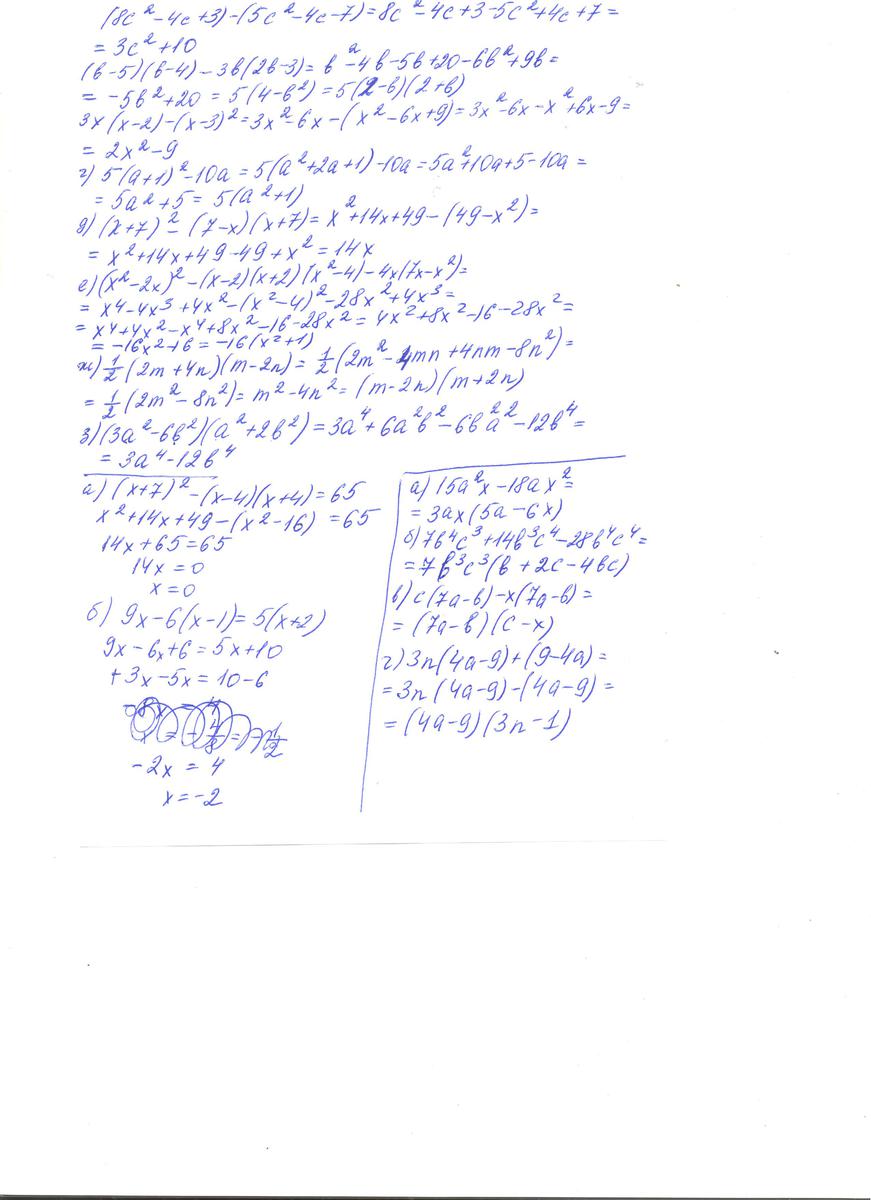 (8c²-4c+3)-(5c²-4c-7)=8c²-4c+3-5c²+4c+7=
=3c²+10
(b-5)(b-4)-3b(2b-3)=b²-4b-5b+20-6b²+9b=
=-5b²+20=5(4-b²)=5(2-b)(2+b)
3x(x-2)-(x-3)²=3x²-6x-(x²-6x+9)=3x²-6x-x²+6x-9=
=2x²-9
г) 5(a+1)²-10a=5(a²+2a+1)-10a=5a²+10a+5-10a=
=5a²+5=5(a²+1)
д) (x+7)²-(7-x)(x+7)=x²+14x+49-(49-x²)=
=x²+14x+49-49+x²=14x
е)(x²-2x)²-(x-2)(x+2)(x²-4)-4x(7x-x²)=
=x⁴-4x³+4x²-(x²-4)²-28x²+4x³=
=x⁴+4x²-x⁴+8x²-16-28x²=4x²+8x²-16-28x²=
=-16x²-16=-16(x²+1)
ж) 1/2(2m+4n)(m-2n)=1/2(2m²-4mn+4nm-8n²)=
=1/2(2m²-8n²)=m²-4n²=(m-2n)(m+2n)
з)(3a²-6b²)(a²+2b²)=3a⁴+6a²b²-6b²a²-12b⁴=
=3a⁴-12b⁴
а) (x+7)²-(x-4)(x+4)=65
x²+14x+49-(x²-16)=65
14x+65=65
14x=0
x=0
б) 9x-6(x-1)=5(x+2)
9x-6x+6=5x+10
+3x-5x=10-6
-2x=4
x=-2
а) 15a²x-18ax²=
=3ax(5a-6x)
б)7b⁴c³+14b³c⁴-28b⁴c⁴=
=7b³c³(b+2c-4bc)
в) c(7a-b)-x(7a-b)=
=(7a-b)(c-x)
г)3n(4a-9)+(9-4a)=
=3n(4a-9)-(4a-9)=
=(4a-9)(3n-1)